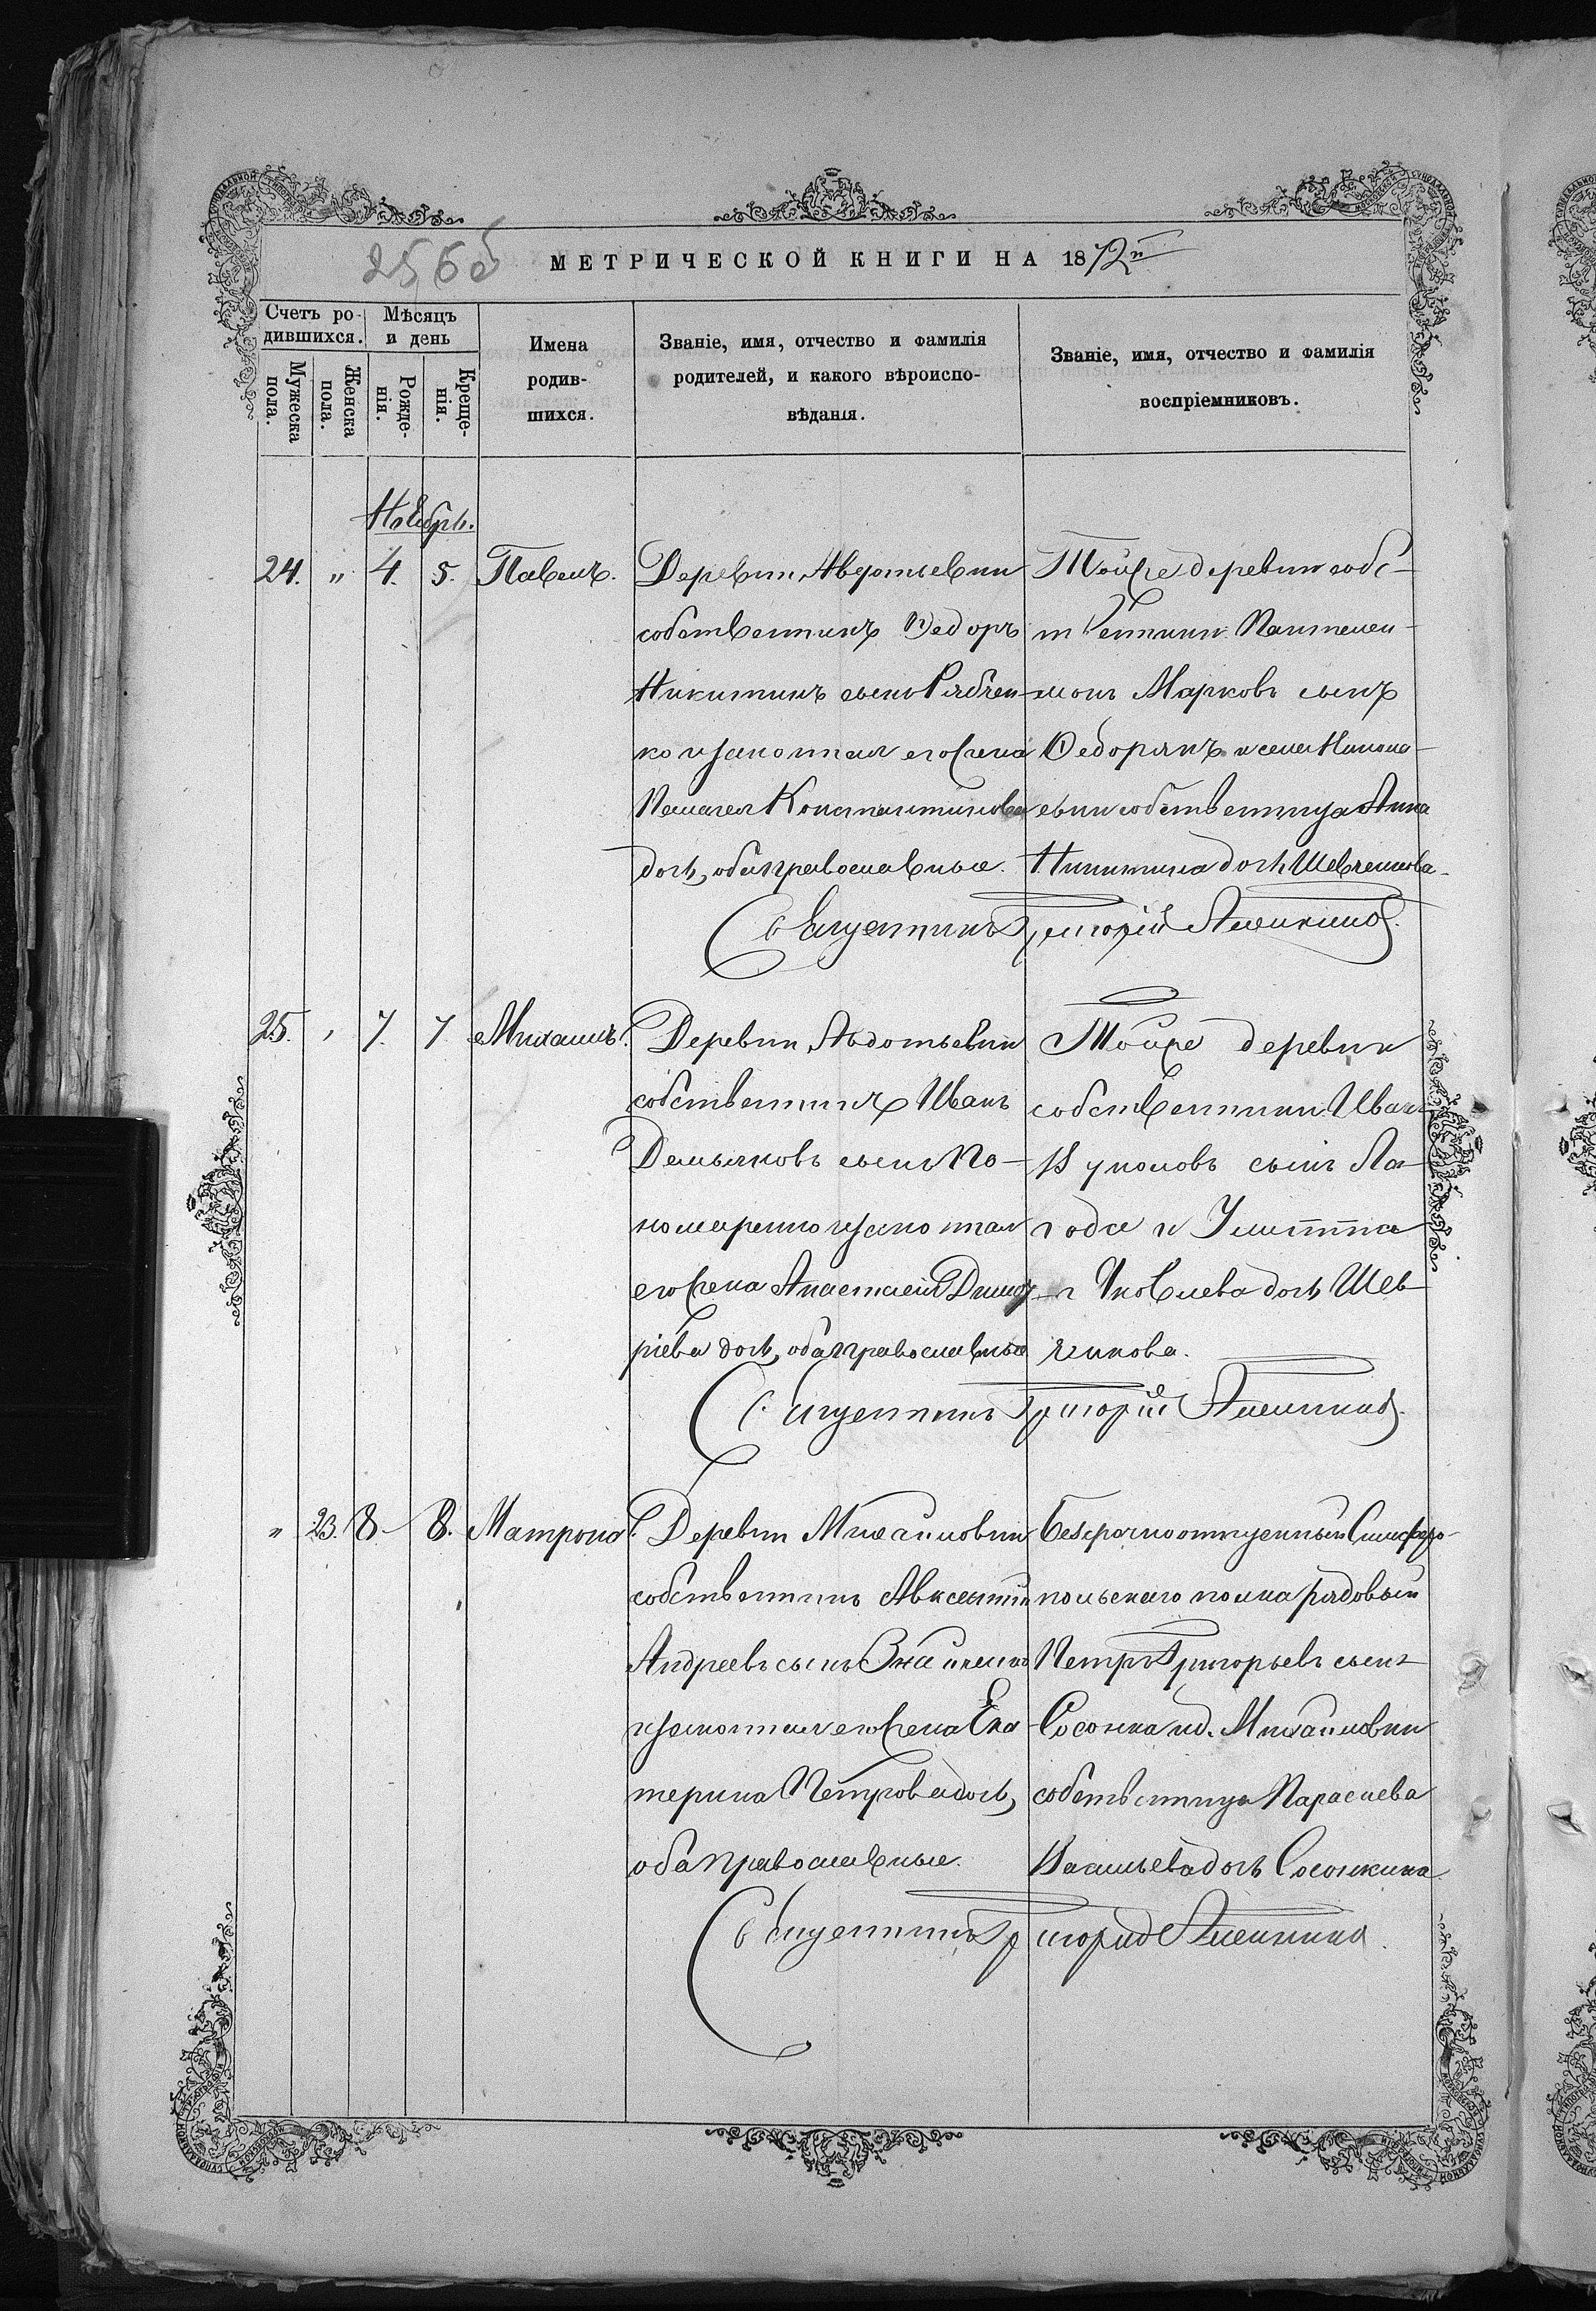 256об
МЕТРИЧЕСКОЙ КНИГИ НА 1872й
Счетъ родившихся.
Мѣсяцъ и день
Мужеска пола.
Женска пола.
Рожденія.
Крещенія.
Имена родившихся.
Званіе, имя, отчество и фамилія
родителей, и какого вѣроиспо-
вѣданія.
Званіе, имя, отчество и фамилія
воспріемниковъ.
Ноябрь.
24. " 4. 5. Павелъ.
Деревни Авдотьевки
собственникъ Ѳедоръ
Никитинъ сынъ Рябчен-
ко и законная его жена
Пелагея Константинова
дочь, оба православные.
Тойже деревни собс-
твенники Пантелей-
монъ Марковъ сынъ
Ѳедорякъ и села Никола-
евки собственница Анна
Никитина дочь Шевченкова.
Священникъ Григорій
25. " 7. 7 Михаилъ.
Деревни Авдотьевки
собственникъ Иванъ
Демьяновъ сынъ По-
номаренко и законная
его жена Анастасія Димит-
ріева дочь, оба православные
Тойже деревни
собственники Иванъ
Вуколовъ сынъ Ла-
года и Улитта
Яковлева дочь Шев-
чикова.
Священникъ Григорій
" 23. 8. 8. Матрона.
Деревни Михайловки
собственникъ Авксентій
Андреевъ сынъ
и законная его жена Ека
терина Петрова дочь,
оба православные.
Безсрочноотпускный Симферо-
польскаго полка рядовый
Петръ Григорьевъ сынъ
Сосонка и д. Михайловки
собственница Параскева
Васильева дочь Сосонкина.
Священникъ Григорій